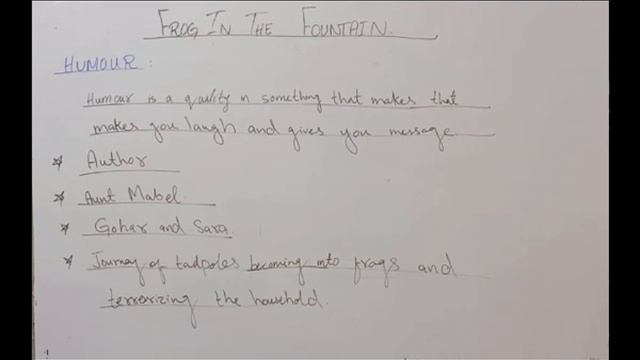 FROG IN THE FOUNTAIN.
HUMOUR :
Humour is a quality in something that makes that
makes you laugh and gives you message
* Author
* Aunt Mabel.
* Gohar and Sara
* Journey of tadpoles becoming into frogs and
terrorizing the household.